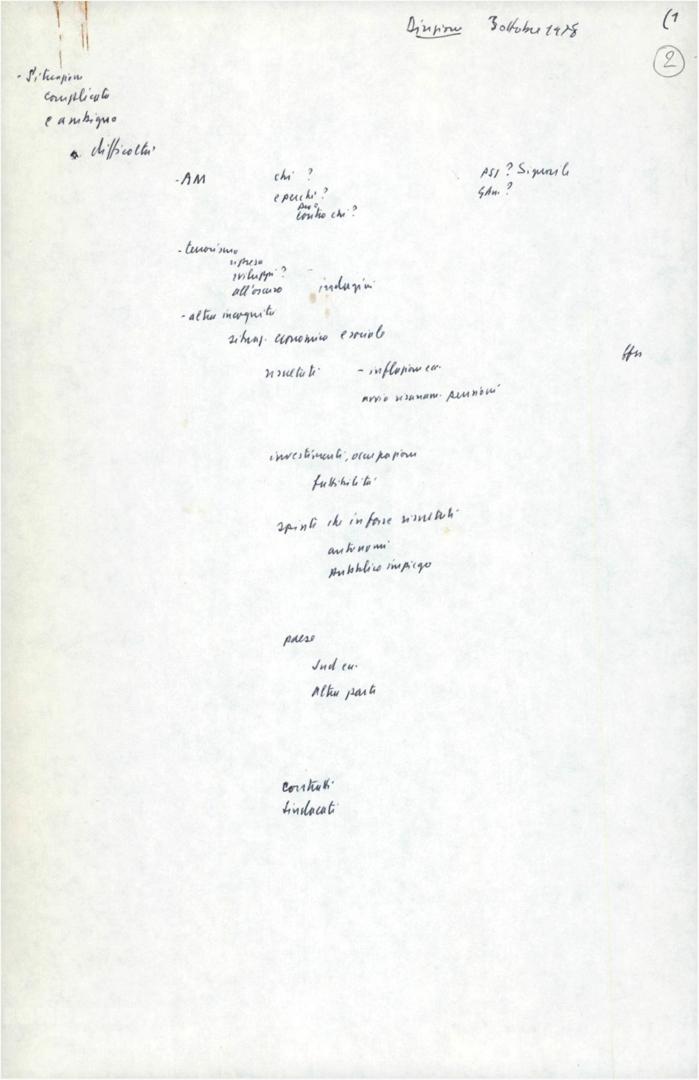 Direzione 3 ottobre 1978 (1
2
- Situazione
complicata
e ambigua
difficoltà
- AM chi ? PSI ? Signorile
e perché ? Gen. ?
pro o
contro chi ?
- terrorismo
ripresa
sviluppi ?
all'oscuro indagini
- altre incognite
situaz. economica e sociale
risultati - inflazione ecc.
avvio risanam. pensioni
investimenti, occupazione
fattibilità
spinte che in forse risultati
autonomi
pubblico impiego
paese
Sud ecc.
Altra parte
contratti
sindacati